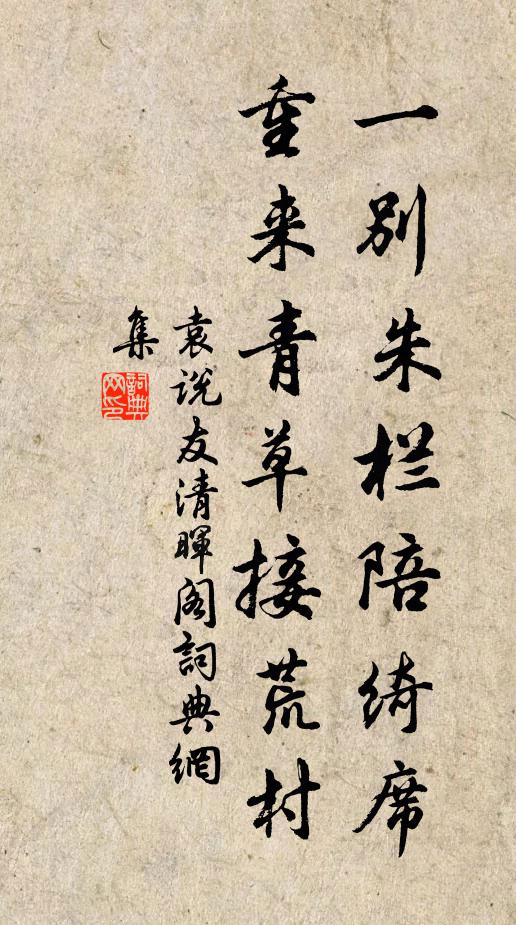 一别朱栏陪绮席
重来青草接荒村
袁说友清暉阁詞典網
集
詞典
网印